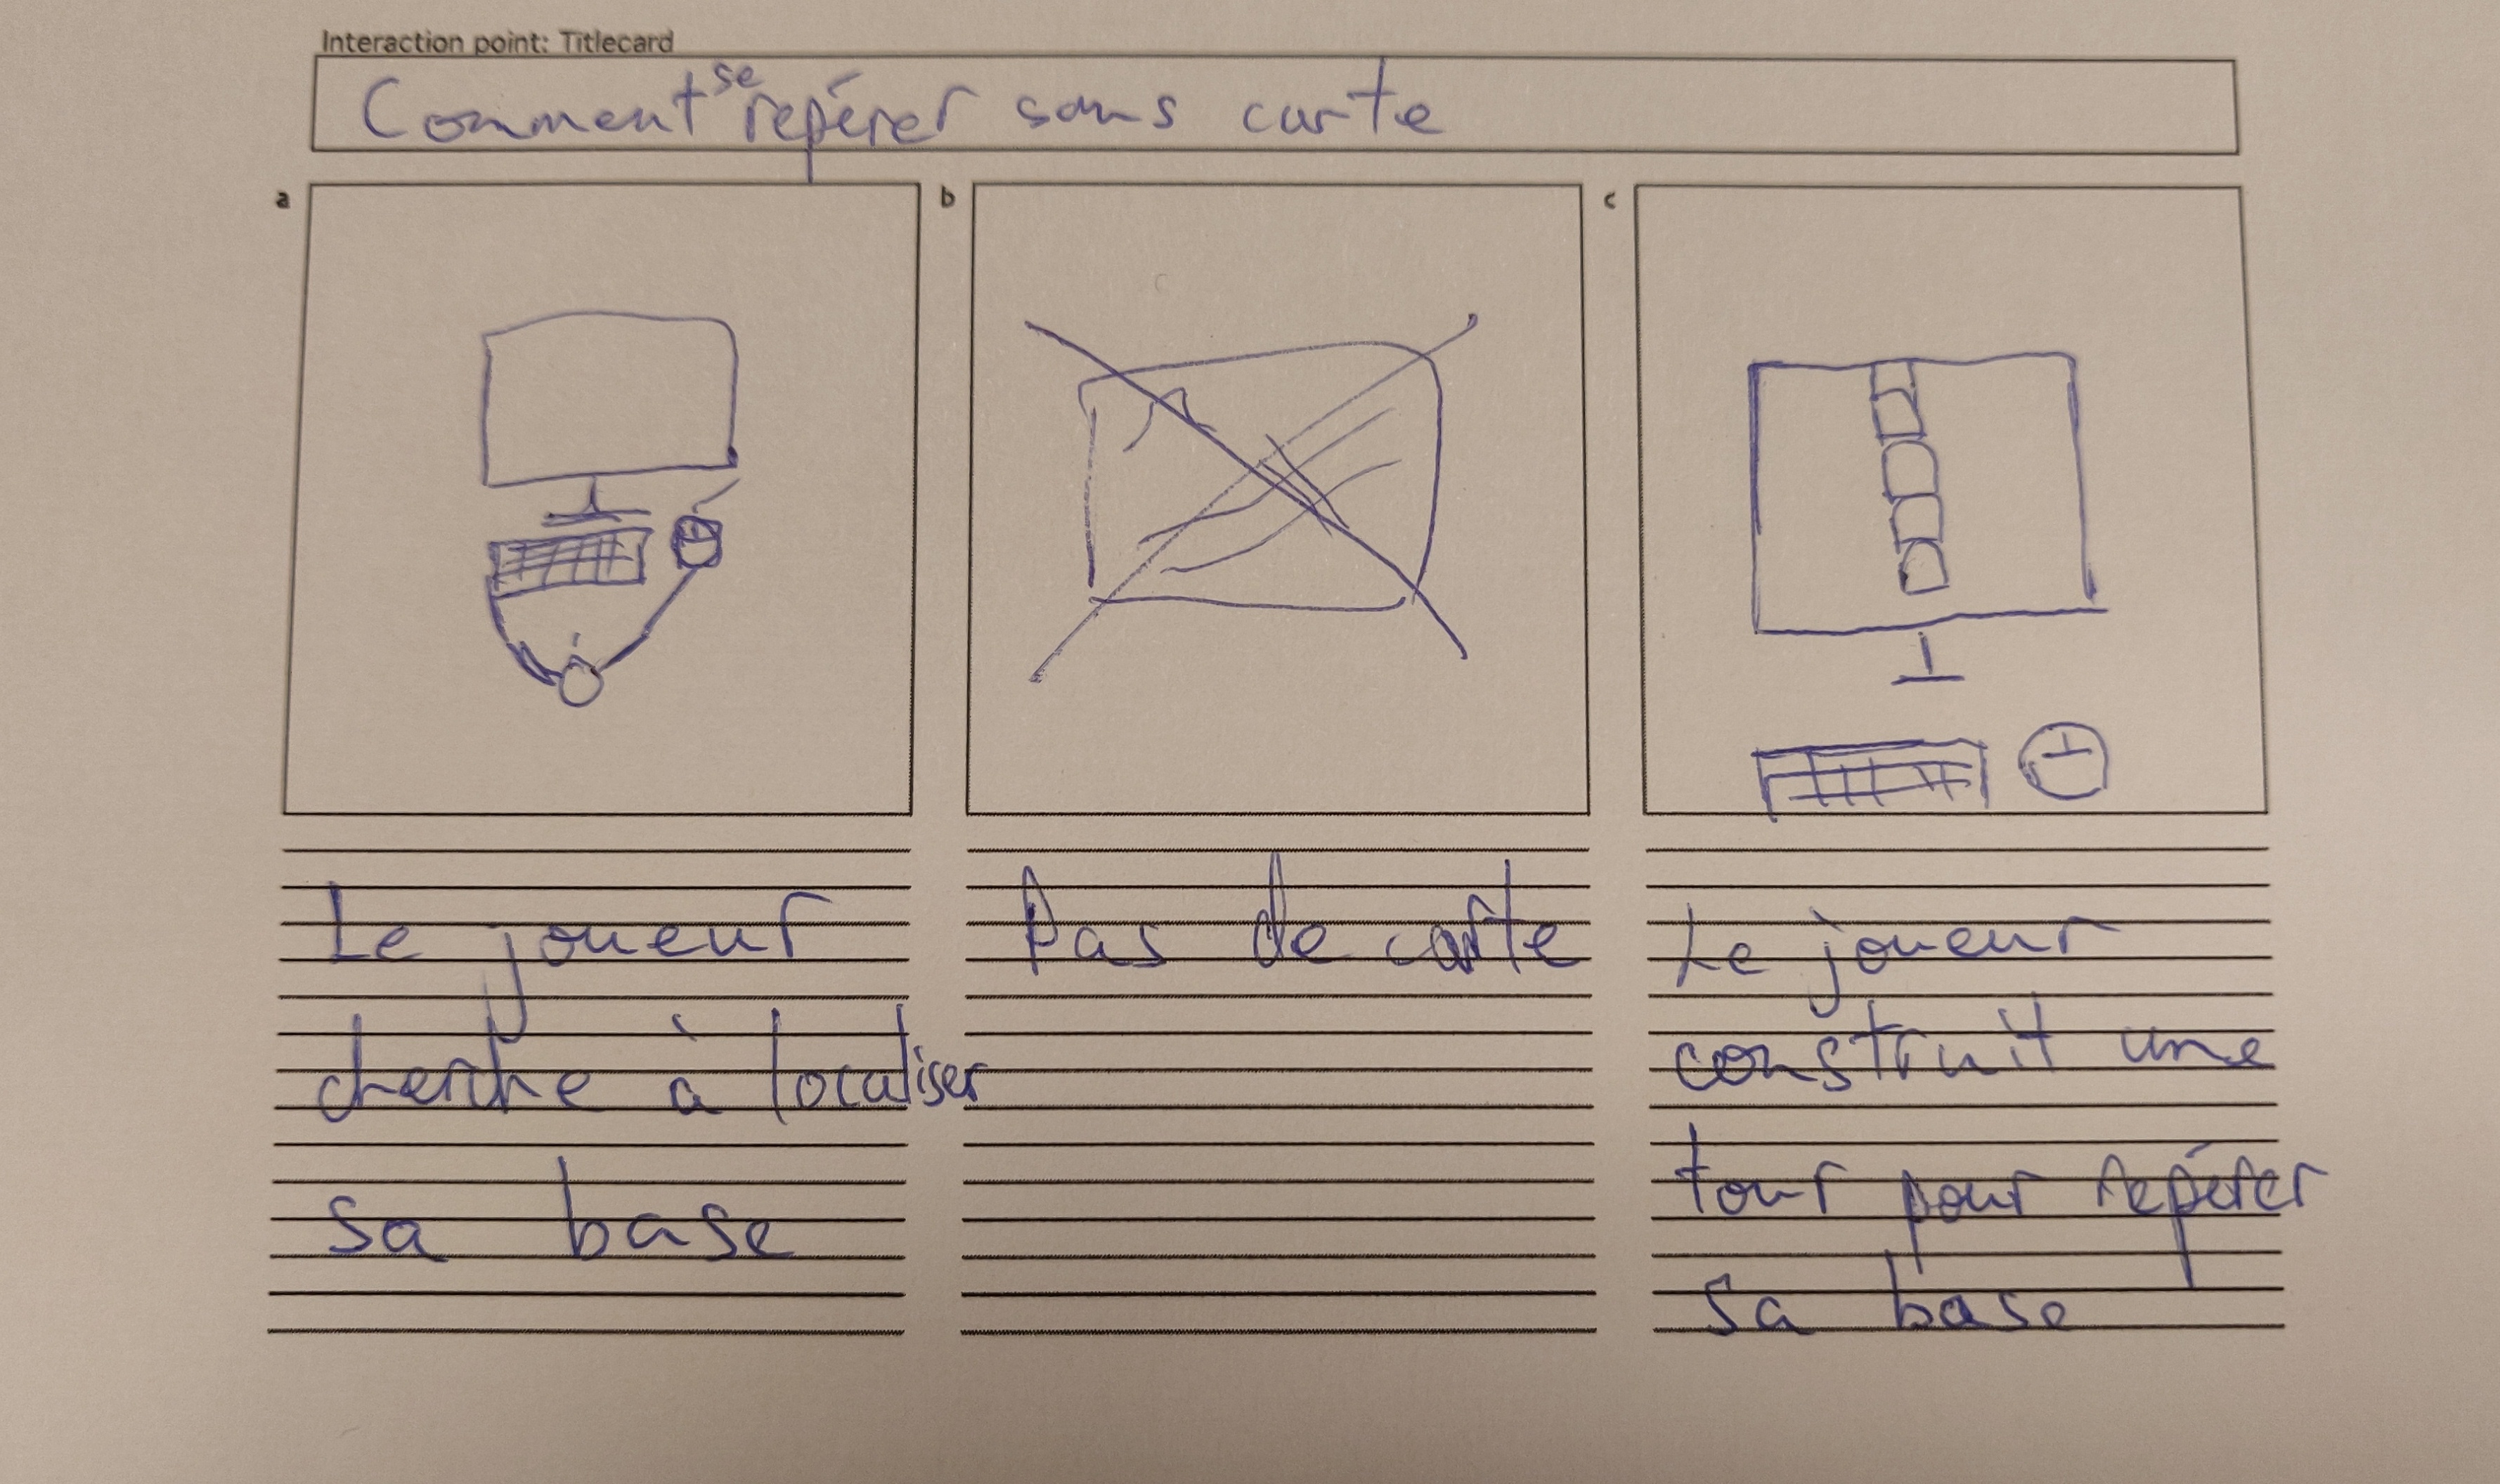 Interaction point: Titlecard
Comment se repérer sans carte
a
b
c
Le joueur
cherche à localiser
sa base
Pas de carte
Le joueur
construit une
tour pour repérer
sa base